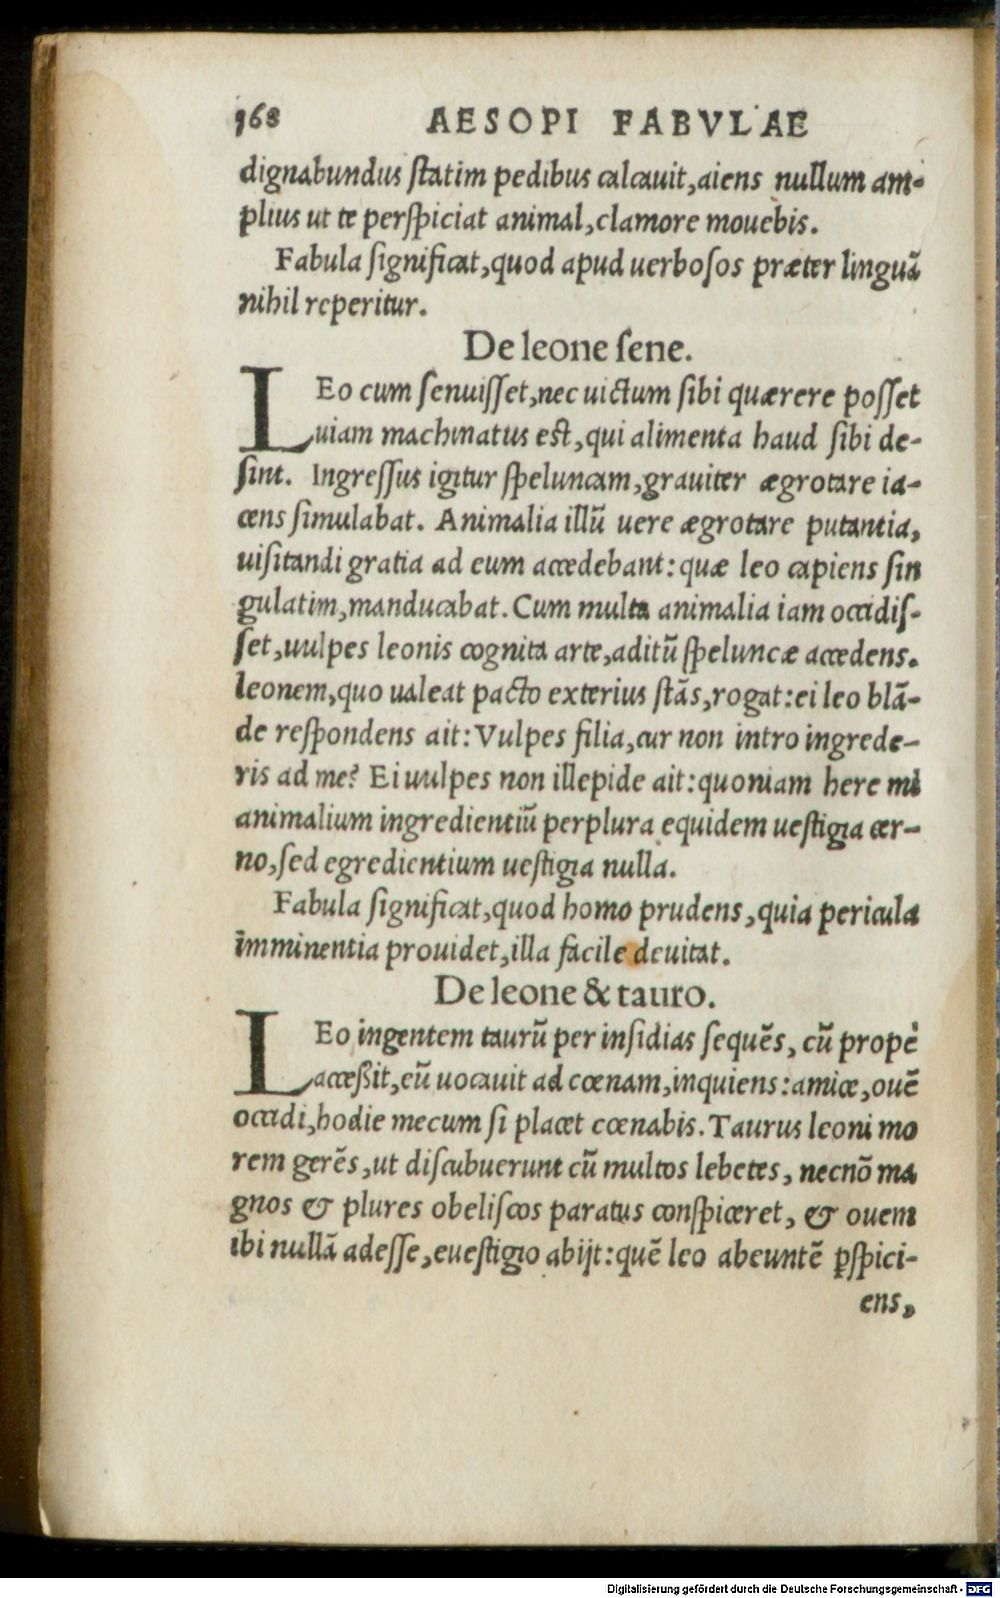 168 AESOPI FABVLAE
dignabundus ſtatim pedibus calcauit,aiens nullum am-
plius ut te perſpiciat animal,clamore mouebis.
Fabula ſignificat,quod apud uerboſos præter linguã
nihil reperitur.
De leone ſene.
LEo cum ſenuiſſet,nec uictum ſibi quærere poſſet
uiam machinatus eſt,qui alimenta haud ſibi de-
ſint. Ingreſſus igitur ſpeluncam,grauiter ægrotare ia-
cens ſimulabat. Animalia illũ uere ægrotare putantia,
uiſitandi gratia ad eum accedebant:quæ leo capiens ſin
gulatim,manducabat. Cum multa animalia iam occidiſ-
ſet,uulpes leonis cognita arte,aditũ ſpeluncæ accedens.
leonem,quo ualeat pacto exterius ſtãs,rogat:ei leo blã-
de reſpondens ait:Vulpes filia,cur non intro ingrede-
ris ad me? Ei uulpes non illepide ait:quoniam here mi
animalium ingredientiũ perplura equidem ueſtigia cer-
no,ſed egredientium ueſtigia nulla.
Fabula ſignificat,quod homo prudens,quia pericula
imminentia prouidet,illa facile deuitat.
De leone & tauro.
LEo ingentem taurũ per inſidias ſequẽs, cũ propè
acceßit,eũ uocauit ad cœnam,inquiens:amice,ouẽ
occidi,hodie mecum ſi placet cœnabis. Taurus leoni mo
rem gerẽs,ut diſcubuerunt cũ multos lebetes, necnõ ma
gnos & plures obeliſcos paratus conſpiceret, & ouem
ibi nullã adeſſe,eueſtigio abijt:quẽ leo abeuntẽ ꝑſpici-
ens,
Digitalisierung gefördert durch die Deutsche Forschungsgemeinschaft - DFG